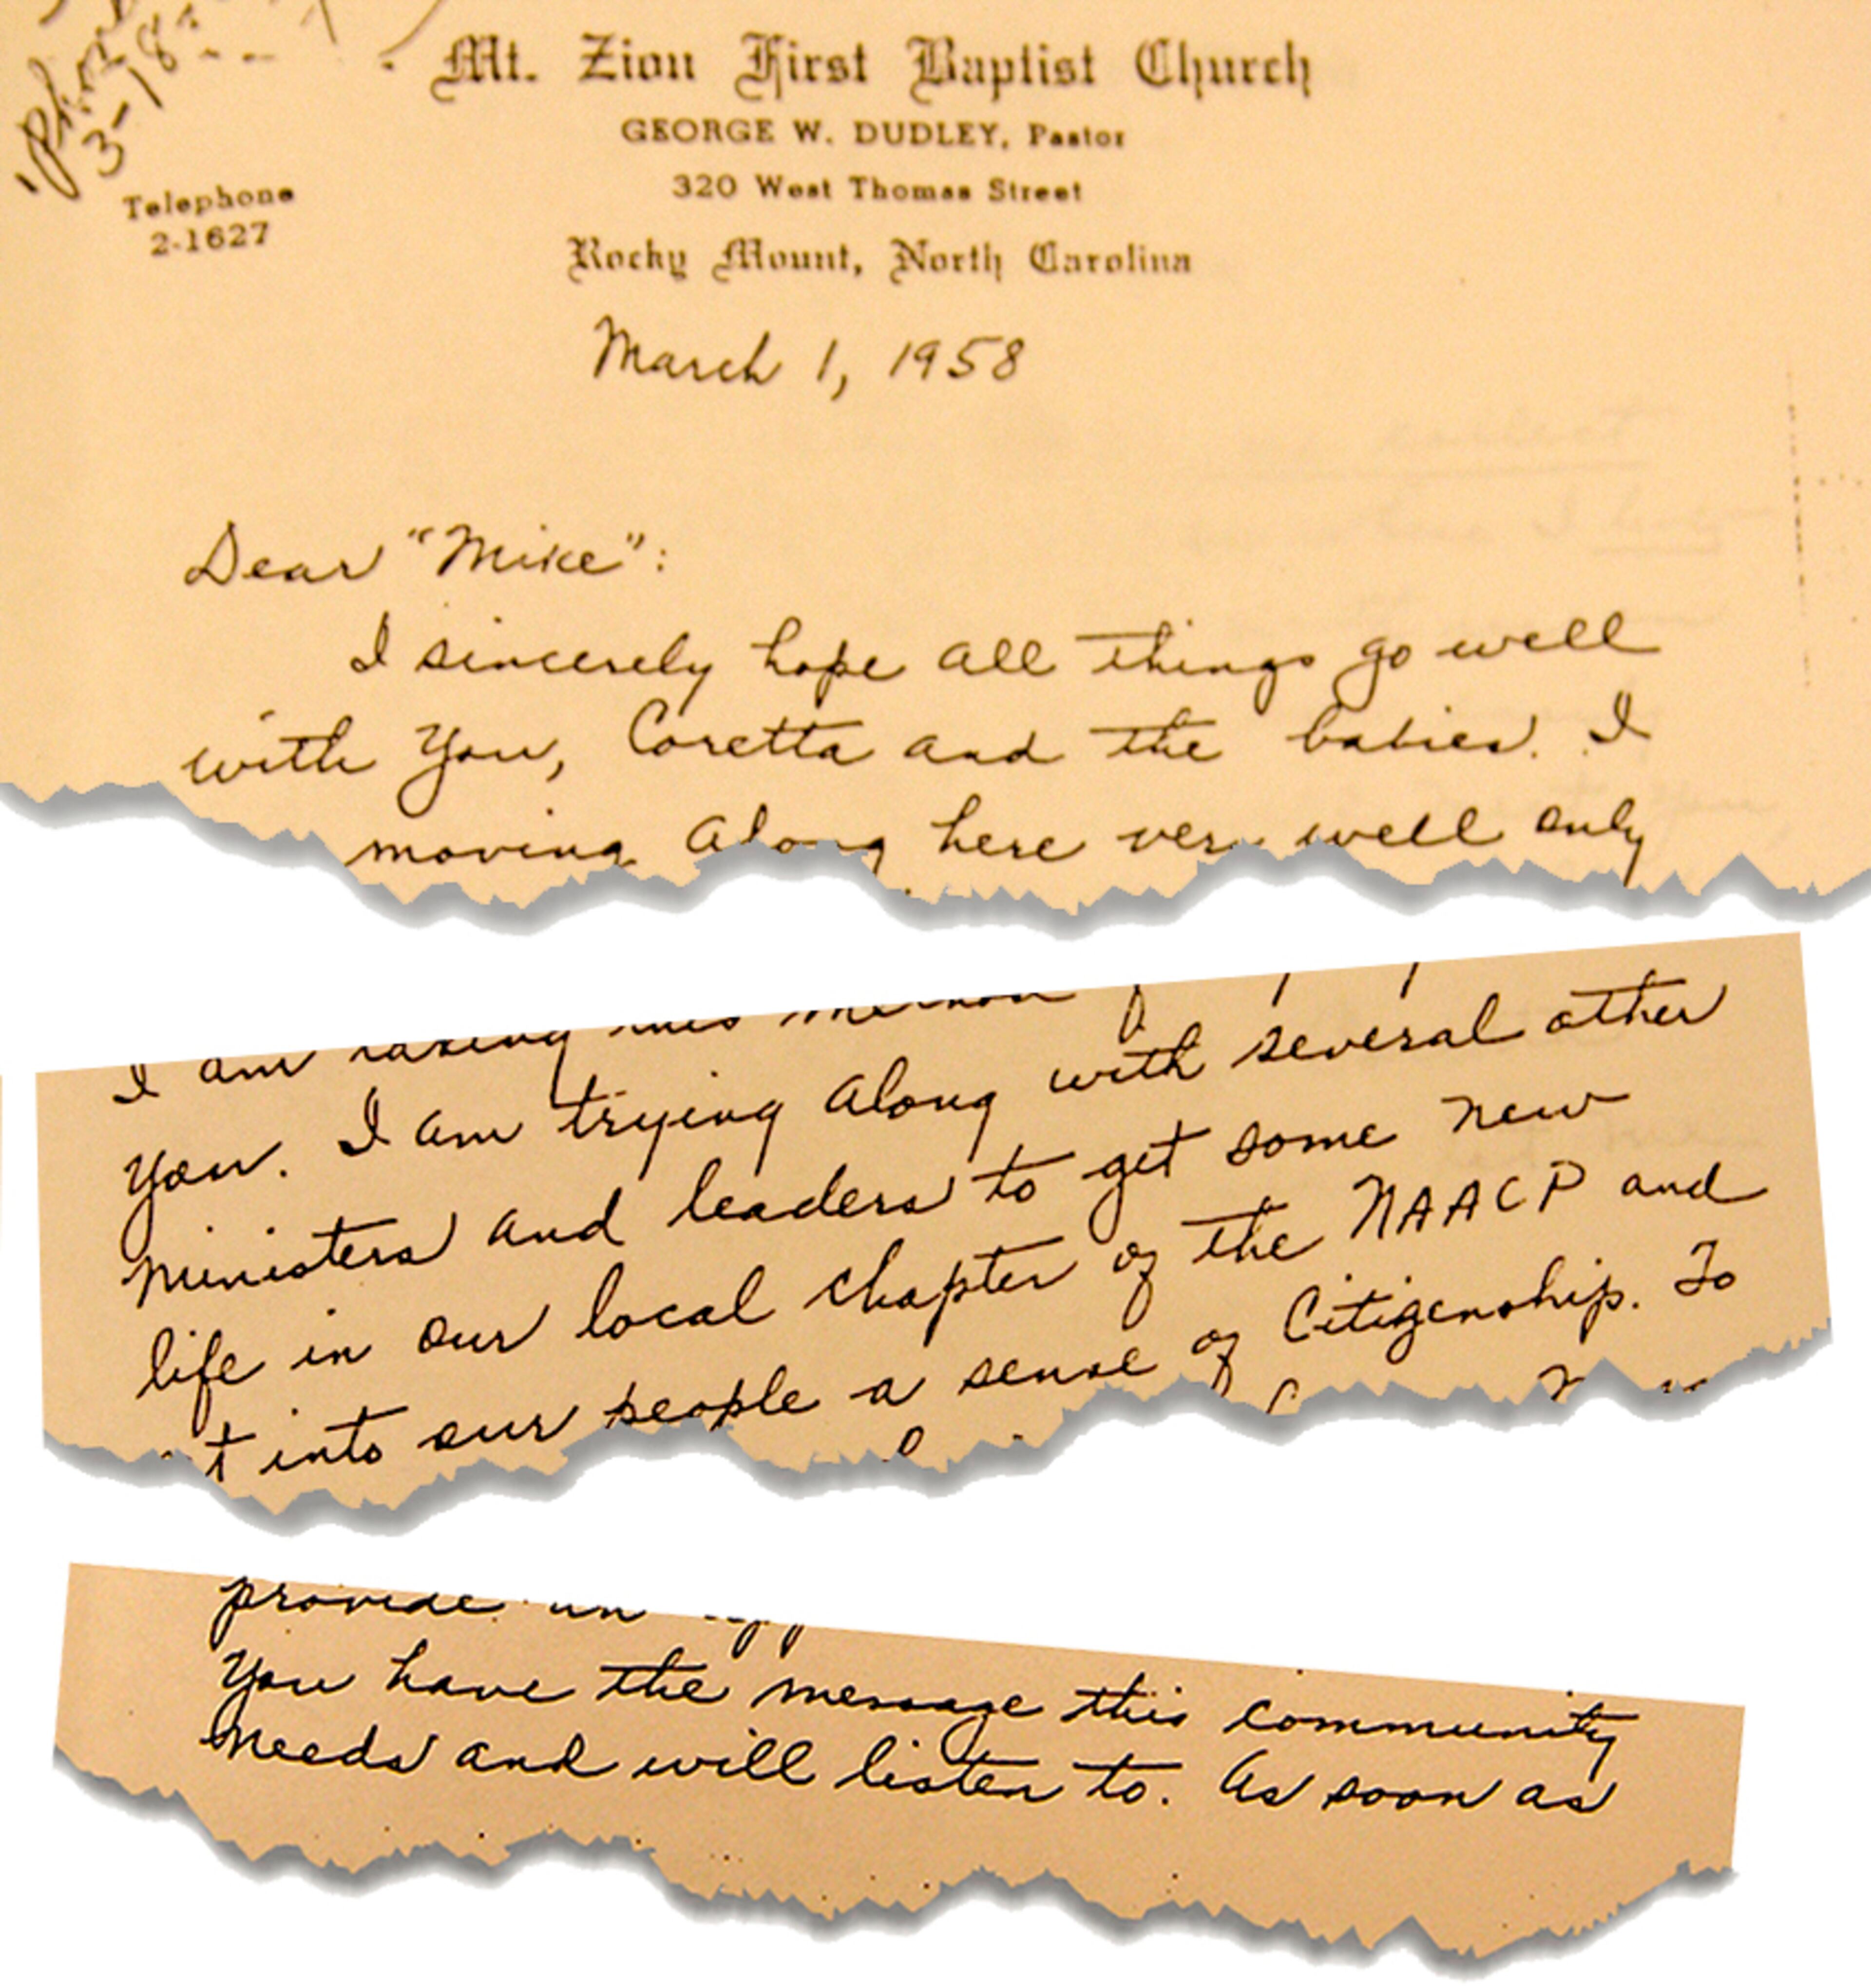 3-18-
Mt. Zion First Baptist Church
GEORGE W. DUDLEY, Pastor
320 West Thomas Street
Telephone
2-1627
Rocky Mount, North Carolina
March 1, 1958
Dear "Mike":
I sincerely hope all things go well
with You, Coretta and the babies. I
moving along here very well only
I am taking this method of
You. I am trying along with several other
ministers and leaders to get some new
life in our local chapter of the NAACP and
into our people a sense of Citizenship. To
provide an
You have the message this community
needs and will listen to. As soon as